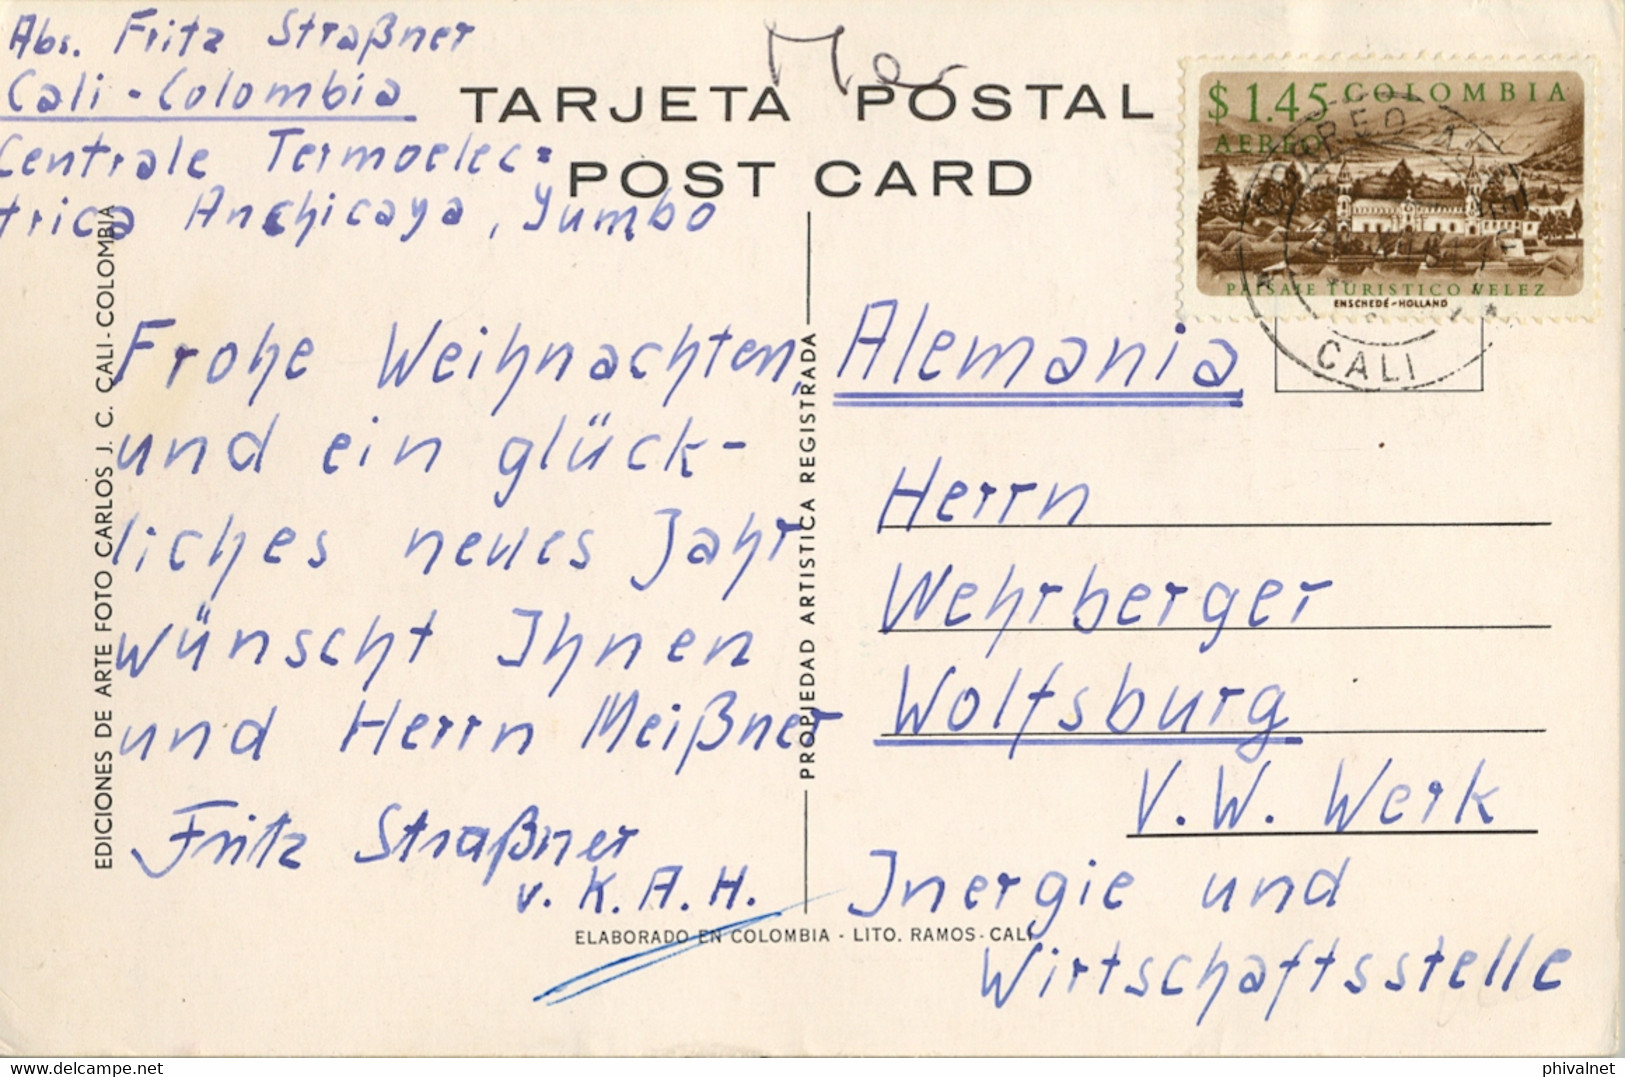 Abs. Fritz Straßner
Cali - Colombia
Centrale Termoelec=
trica Anchicaya, Yumbo
TARJETA POSTAL
POST CARD
$1.45 COLOMBIA
AEREO
PAISAJE TURISTICO VELEZ
ENSCHEDÉ-HOLLAND
CALI
EDICIONES DE ARTE FOTO CARLOS J. C. CALI-COLOMBIA
Frohe Weihnachten,
und ein glück-
liches neues Jahr
wünscht Ihnen
und Herrn Meißner
Fritz Straßner
v. K. A. H.
PROPIEDAD ARTISTICA REGISTRADA
Alemania
Herrn
Wehrberger
Wolfsburg
V. W. Werk
Inergie und
Wirtschaftsstelle
ELABORADO EN COLOMBIA - LITO. RAMOS-CALI
www.delcampe.net
phivalnet